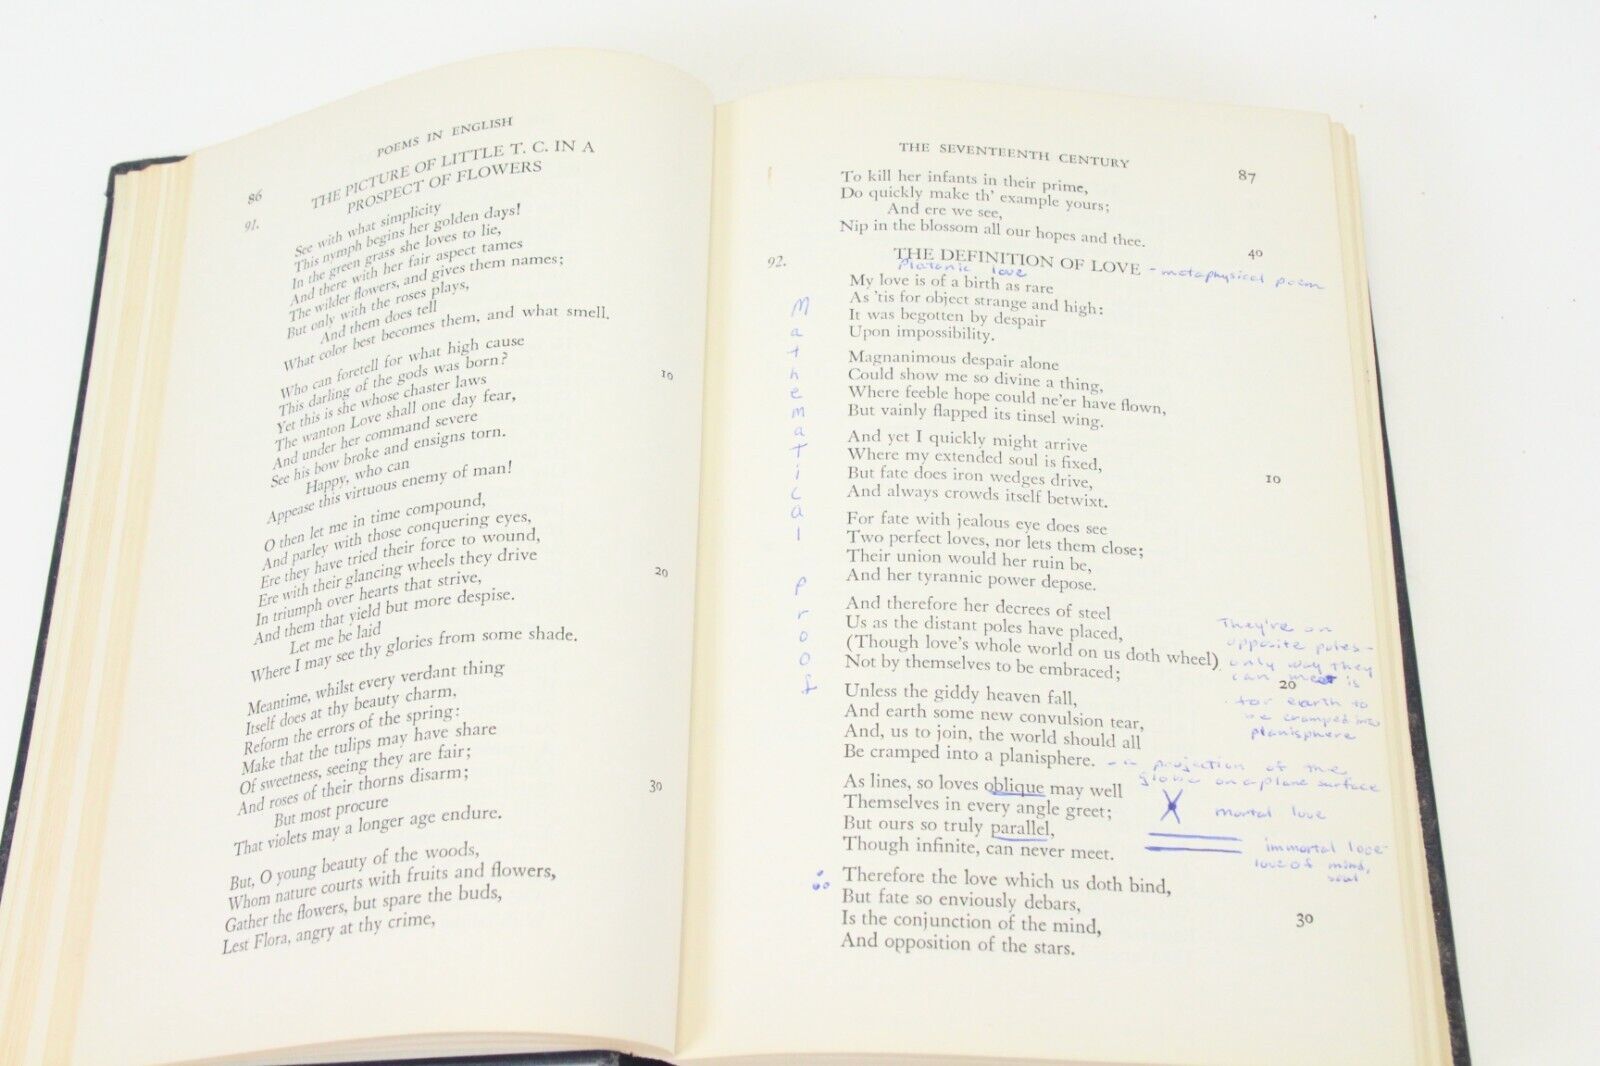 POEMS IN ENGLISH
86
THE PICTURE OF LITTLE T. C. IN A
PROSPECT OF FLOWERS
91.
See with what simplicity
This nymph begins her golden days!
In the green grass she loves to lie,
And there with her fair aspect tames
The wilder flowers, and gives them names;
But only with the roses plays,
And them does tell
What color best becomes them, and what smell.
Who can foretell for what high cause
This darling of the gods was born?
10
Yet this is she whose chaster laws
The wanton Love shall one day fear,
And under her command severe
See his bow broke and ensigns torn.
Happy, who can
Appease this virtuous enemy of man!
O then let me in time compound,
And parley with those conquering eyes,
Ere they have tried their force to wound,
Ere with their glancing wheels they drive
20
In triumph over hearts that strive,
And them that yield but more despise.
Let me be laid
Where I may see thy glories from some shade.
Meantime, whilst every verdant thing
Itself does at thy beauty charm,
Reform the errors of the spring:
Make that the tulips may have share
Of sweetness, seeing they are fair;
And roses of their thorns disarm;
30
But most procure
That violets may a longer age endure.
But, O young beauty of the woods,
Whom nature courts with fruits and flowers,
Gather the flowers, but spare the buds,
Lest Flora, angry at thy crime,
THE SEVENTEENTH CENTURY
87
To kill her infants in their prime,
Do quickly make th' example yours;
And ere we see,
Nip in the blossom all our hopes and thee.
40
92.
THE DEFINITION OF LOVE - metaphysical poem
Platonic love
My love is of a birth as rare
As 'tis for object strange and high:
It was begotten by despair
Upon impossibility.
Mathematical proof
Magnanimous despair alone
Could show me so divine a thing,
Where feeble hope could ne'er have flown,
But vainly flapped its tinsel wing.
And yet I quickly might arrive
Where my extended soul is fixed,
But fate does iron wedges drive,
10
And always crowds itself betwixt.
For fate with jealous eye does see
Two perfect loves, nor lets them close;
Their union would her ruin be,
And her tyrannic power depose.
And therefore her decrees of steel
Us as the distant poles have placed,
(Though love's whole world on us doth wheel)
Not by themselves to be embraced;
20
They're on
opposite poles-
only way they
can meet is
for earth to
be cramped into
planisphere
Unless the giddy heaven fall,
And earth some new convulsion tear,
And, us to join, the world should all
Be cramped into a planisphere. - a projection of the
globe on a plane surface
As lines, so loves oblique may well
Themselves in every angle greet;
mortal love
But ours so truly parallel,
Though infinite, can never meet.
immortal love-
love of mind,
soul
Therefore the love which us doth bind,
But fate so enviously debars,
Is the conjunction of the mind,
30
And opposition of the stars.